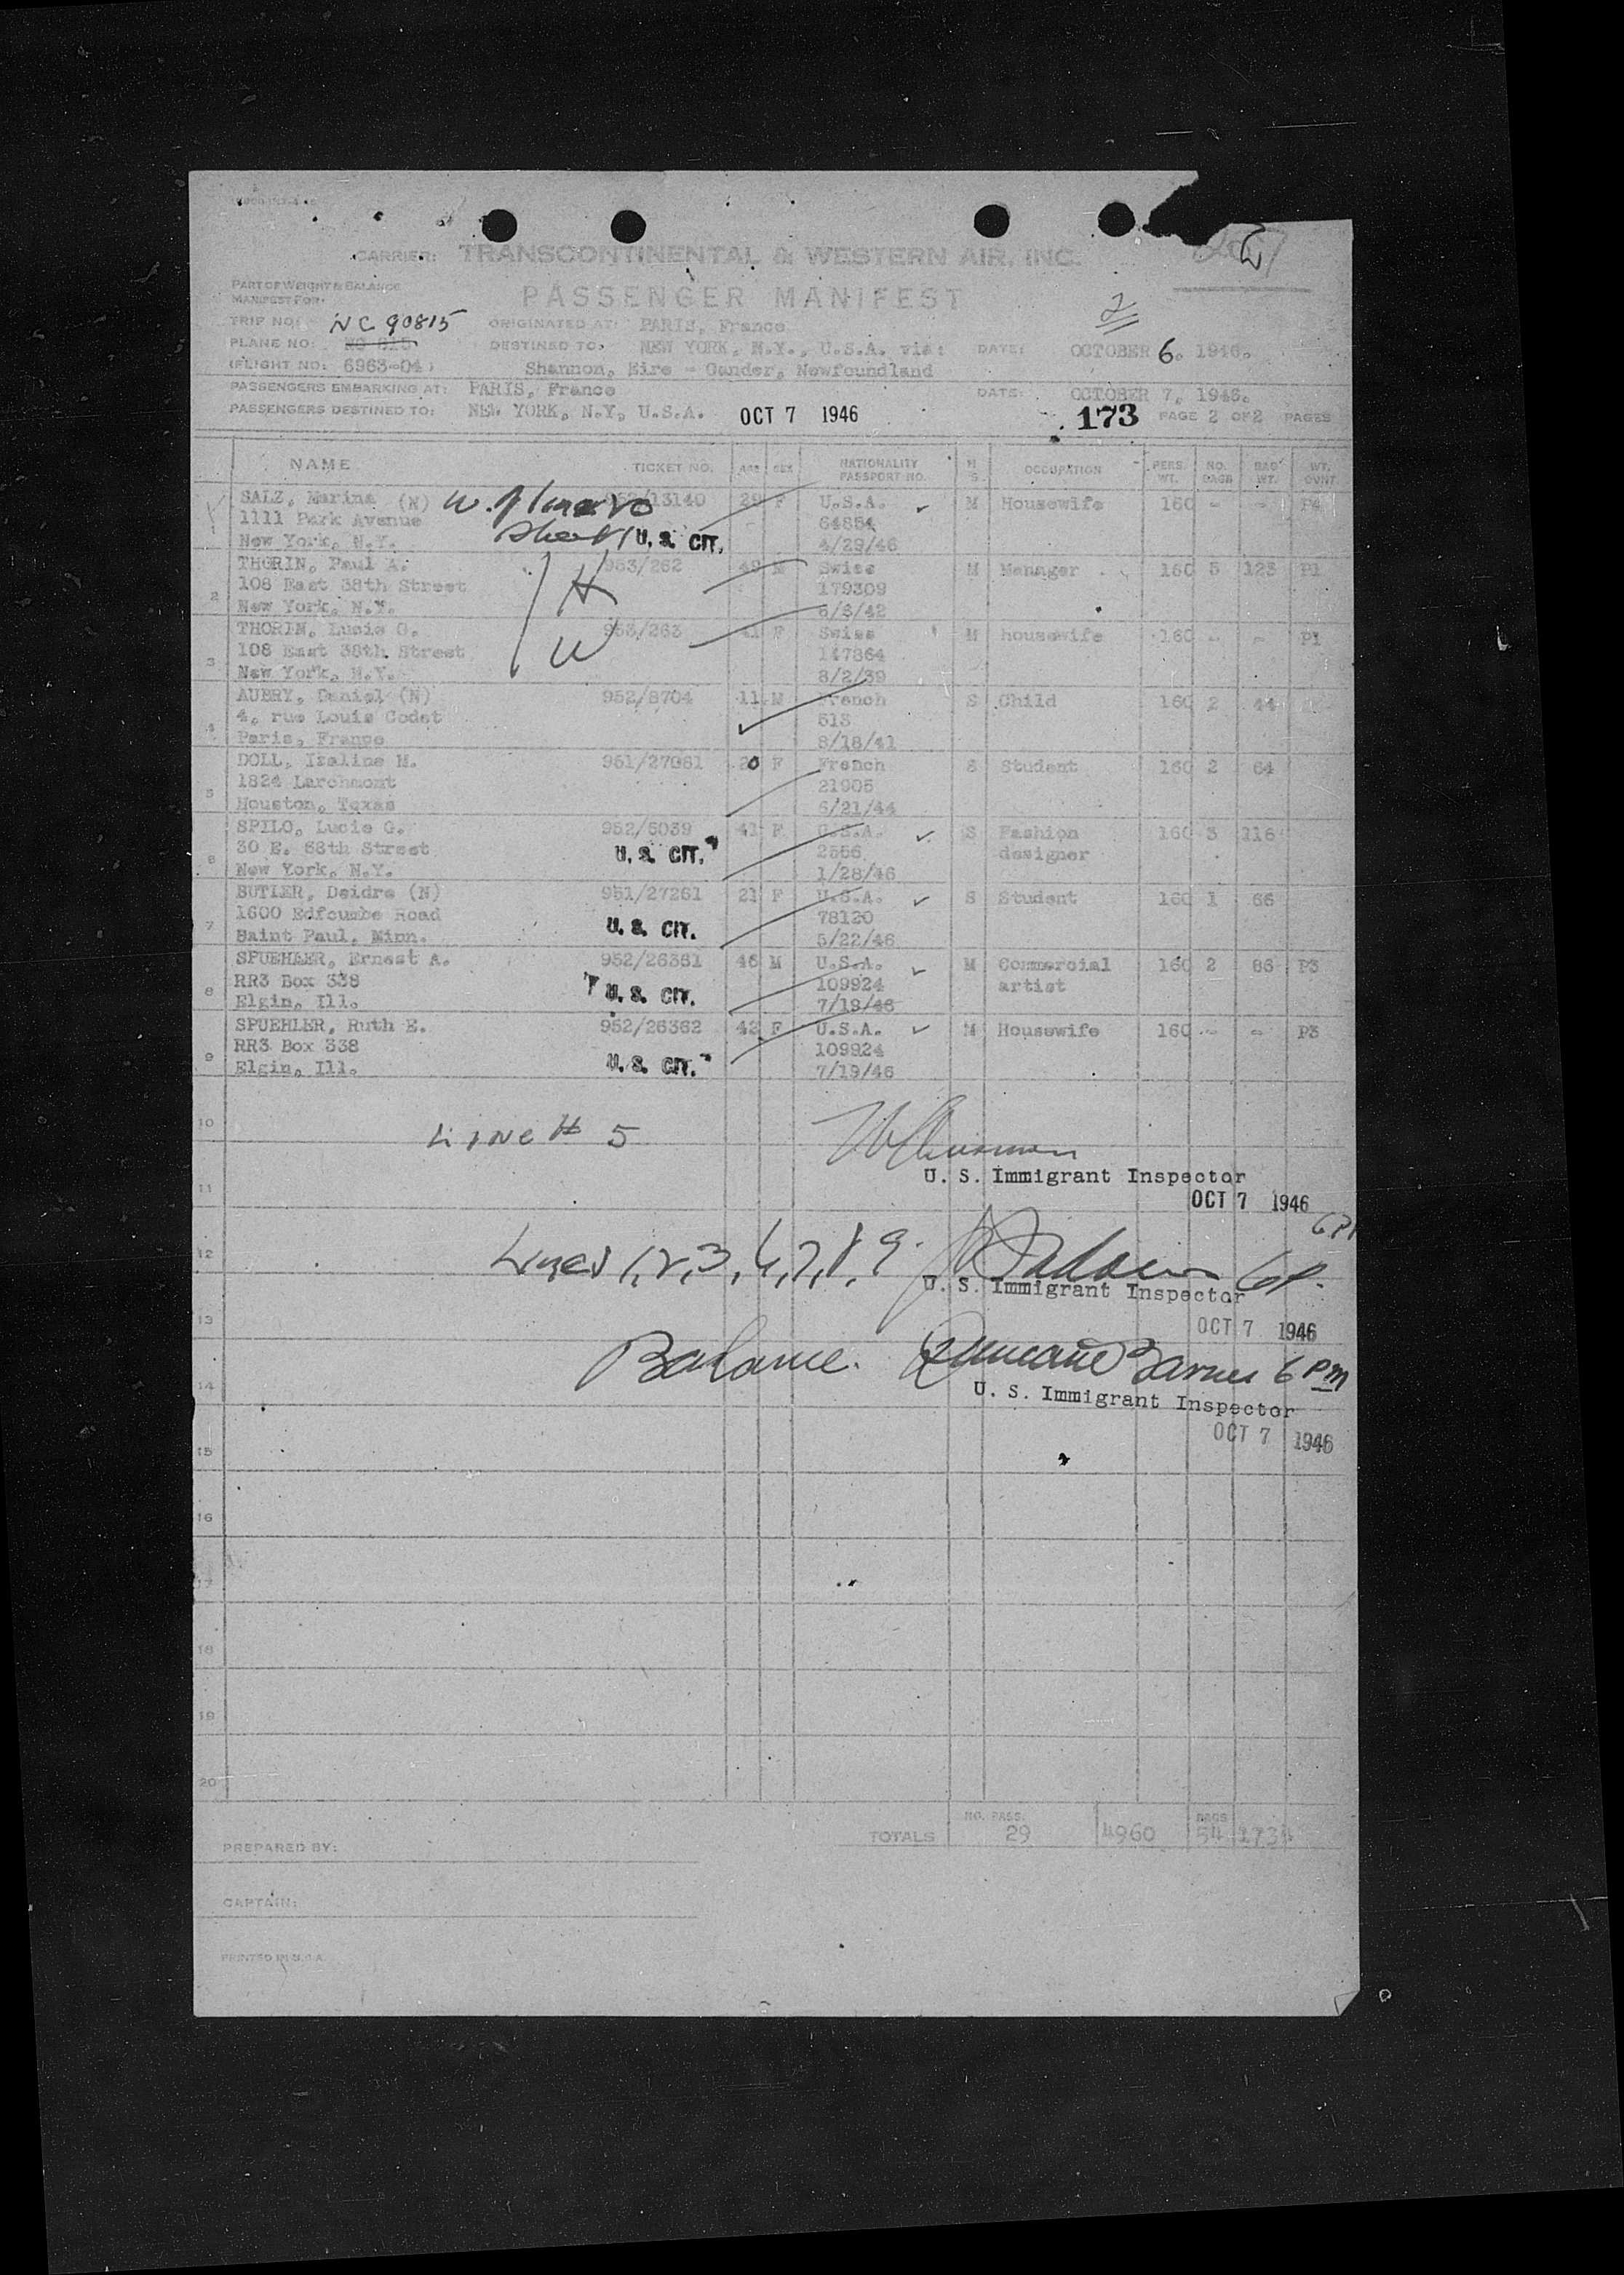 CARRIER: TRANSCONTINENTAL & WESTERN AIR, INC.
PART OF WEIGHT & BALANCE
MANIFEST FOR:
PASSENGER MANIFEST
2
TRIP NO: NC 90815 ORIGINATED AT: PARIS, France
PLANE NO: DESTINED TO: NEW YORK, N.Y., U.S.A. via: DATE: OCTOBER 6, 1946.
(FLIGHT NO: 6963-04) Shannon, Eire - Gander, Newfoundland
PASSENGERS EMBARKING AT: PARIS, France DATE: OCTOBER 7, 1946.
PASSENGERS DESTINED TO: NEW YORK, N.Y, U.S.A. OCT 7 1946 173 PAGE 2 OF 2 PAGES
NAME TICKET NO. AGE SEX NATIONALITY PASSPORT NO. M S OCCUPATION PERS. WT. NO. BAGS BAG WT. WT. CVNT.
1 SALZ, Marina (N) 13140 29 F U.S.A. M Housewife 160 - - P4
1111 Park Avenue 64854
New York, N.Y. U. S. CIT. 4/29/46
2 THORIN, Paul A. H 953/262 49 M Swiss M Manager 160 5 123 P1
108 East 38th Street 179309
New York, N.Y. 6/6/42
3 THORIN, Lucie G. W 953/263 41 F Swiss M housewife 160 - - P1
108 East 38th Street 147864
New York, N.Y. 8/2/39
4 AUBRY, Daniel (N) 952/8704 11 M French S Child 160 2 44
4, rue Louis Codet 513
Paris, France 8/18/41
5 DOLL, Izaline M. 951/27061 20 F French S Student 160 2 64
1824 Larchmont 21905
Houston, Texas 6/21/44
6 SPILO, Lucie G. 952/6039 41 F U.S.A. S Fashion 160 3 116
30 E. 68th Street U. S. CIT. 2556 designer
New York, N.Y. 1/28/46
7 BUTLER, Deidre (N) 951/27261 21 F U.S.A. S Student 160 1 66
1600 Edfcumbe Road U. S. CIT. 78120
Saint Paul, Minn. 5/22/46
8 SPUEHLER, Ernest A. 952/26361 46 M U.S.A. M Commercial 160 2 86 P3
RR3 Box 338 U. S. CIT. 109924 artist
Elgin, Ill. 7/19/46
9 SPUEHLER, Ruth E. 952/26362 42 F U.S.A. M Housewife 160 - - P3
RR3 Box 338 109924
Elgin, Ill. U. S. CIT. 7/19/46
10
Line # 5
U. S. Immigrant Inspector
11 OCT 7 1946
12 Lines 1,2,3,6,7,8,9. 6P.
U. S. Immigrant Inspector
13 OCT 7 1946
Balance. Barnes 6 PM
14 U. S. Immigrant Inspector
OCT 7 1946
15
16
17
18
19
20
TOTALS NO. PASS. 29 4960 BAGS 54
PREPARED BY:
CAPTAIN:
PRINTED IN U.S.A.